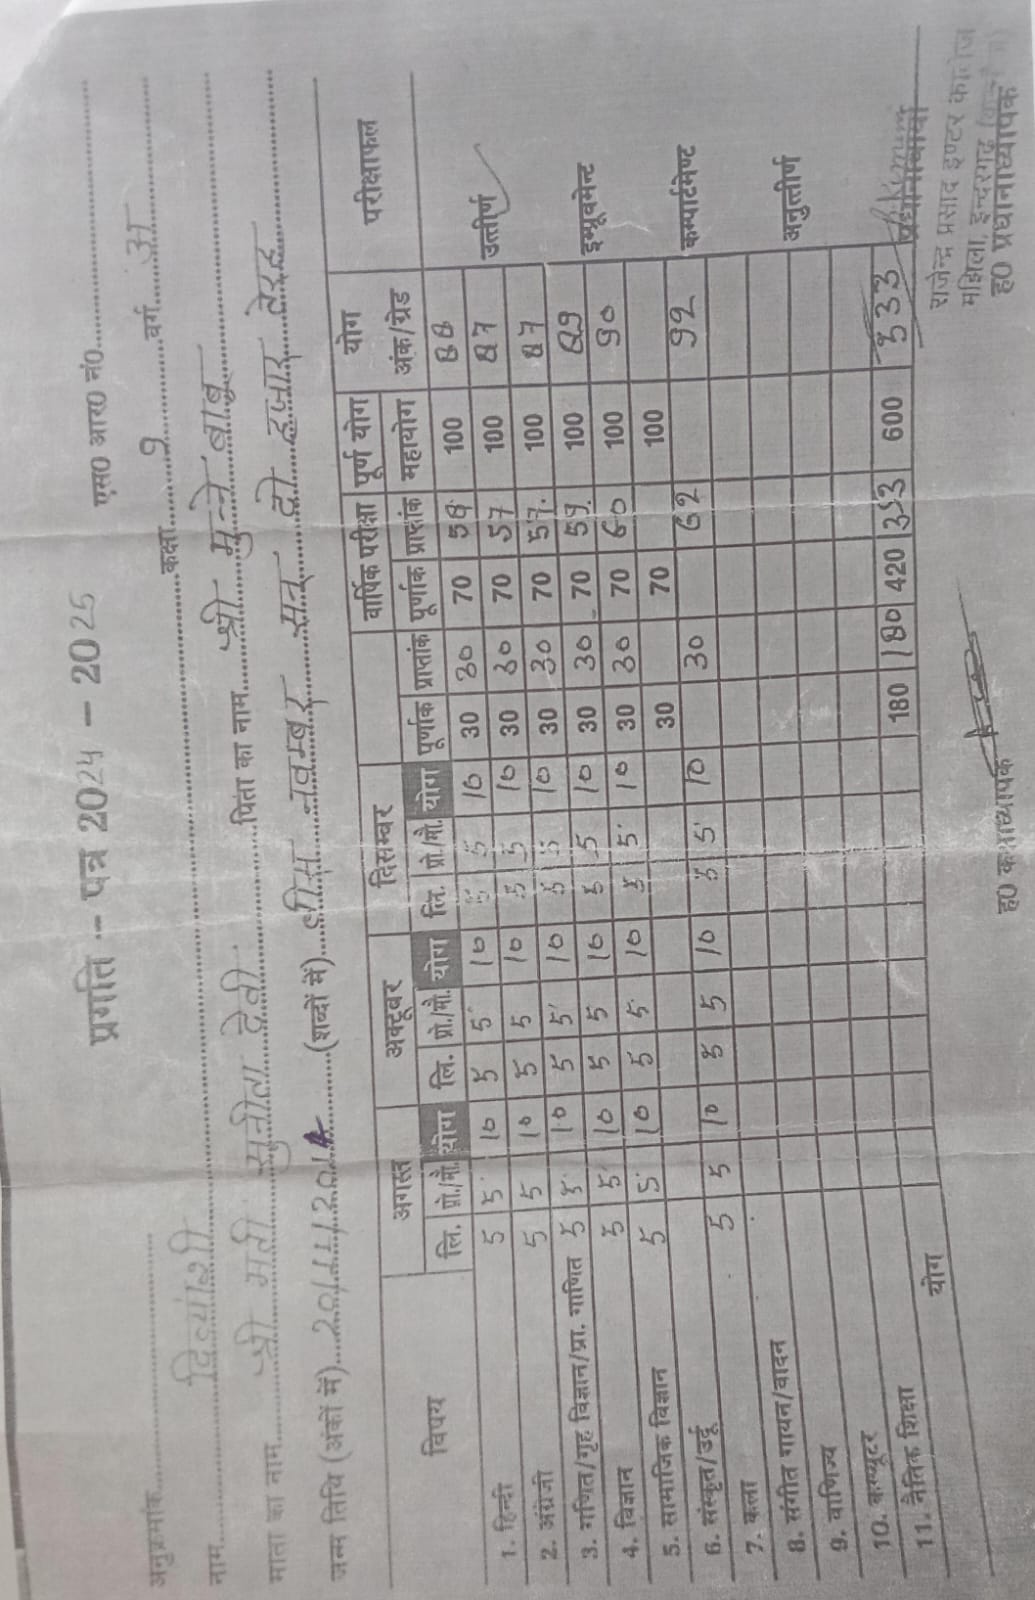 प्रगति -- पत्र 2024 – 2025
अनुक्रमांक.......... एस० आर० नं०..........
नाम.......... दिव्यांशी .......... कक्षा.......... 9 .......... वर्ग.......... अ
माता का नाम.......... श्री मती सुनीता देवी .......... पिता का नाम.......... श्री मुन्ने बाबू
जन्म तिथि (अंकों में)..... 20/11/2014 .....(शब्दों में)..... बीस नवम्बर सन् दो हजार तेरह
विषय अगस्त अक्टूबर दिसम्बर वार्षिक परीक्षा पूर्ण योग योग परीक्षाफल
लि. प्रो./मौ. योग लि. प्रो./मौ. योग लि. प्रो./मौ. योग पूर्णांक प्राप्तांक पूर्णांक प्राप्तांक महायोग अंक/ग्रेड
1. हिन्दी 5 5 10 5 5 10 5 5 10 30 30 70 58 100 88
2. अंग्रेजी 5 5 10 5 5 10 5 5 10 30 30 70 57 100 87
3. गणित/गृह विज्ञान/प्रा. गणित 5 5 10 5 5 10 5 5 10 30 30 70 57 100 87
4. विज्ञान 5 5 10 5 5 10 5 5 10 30 30 70 59 100 89
5. सामाजिक विज्ञान 5 5 10 5 5 10 5 5 10 30 30 70 60 100 90
6. संस्कृत/उर्दू 5 5 10 5 5 10 5 5 10 30 30 70 62 100 92
7. कला
8. संगीत गायन/वादन
9. वाणिज्य
10. कम्प्यूटर
11. नैतिक शिक्षा
योग 180 180 420 353 600 533
उत्तीर्ण
इम्प्रूवमेन्ट
कम्पार्टमेण्ट
अनुत्तीर्ण
ह० कक्षाध्यापक
प्रधानाचार्य
राजेन्द्र प्रसाद इण्टर कालेज
मझिला, इन्दरगढ़
ह० प्रधानाध्यापक